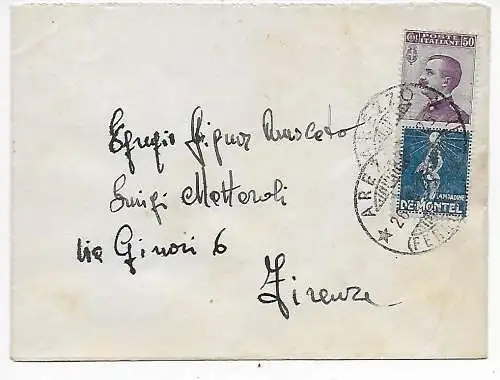 POSTE
ITALIANE
50
LAMPADINE
DE MONTEL
AREZZO
(FERR
26
Egregio Signor
Luigi Matteroli
Via Ginori 6
Firenze